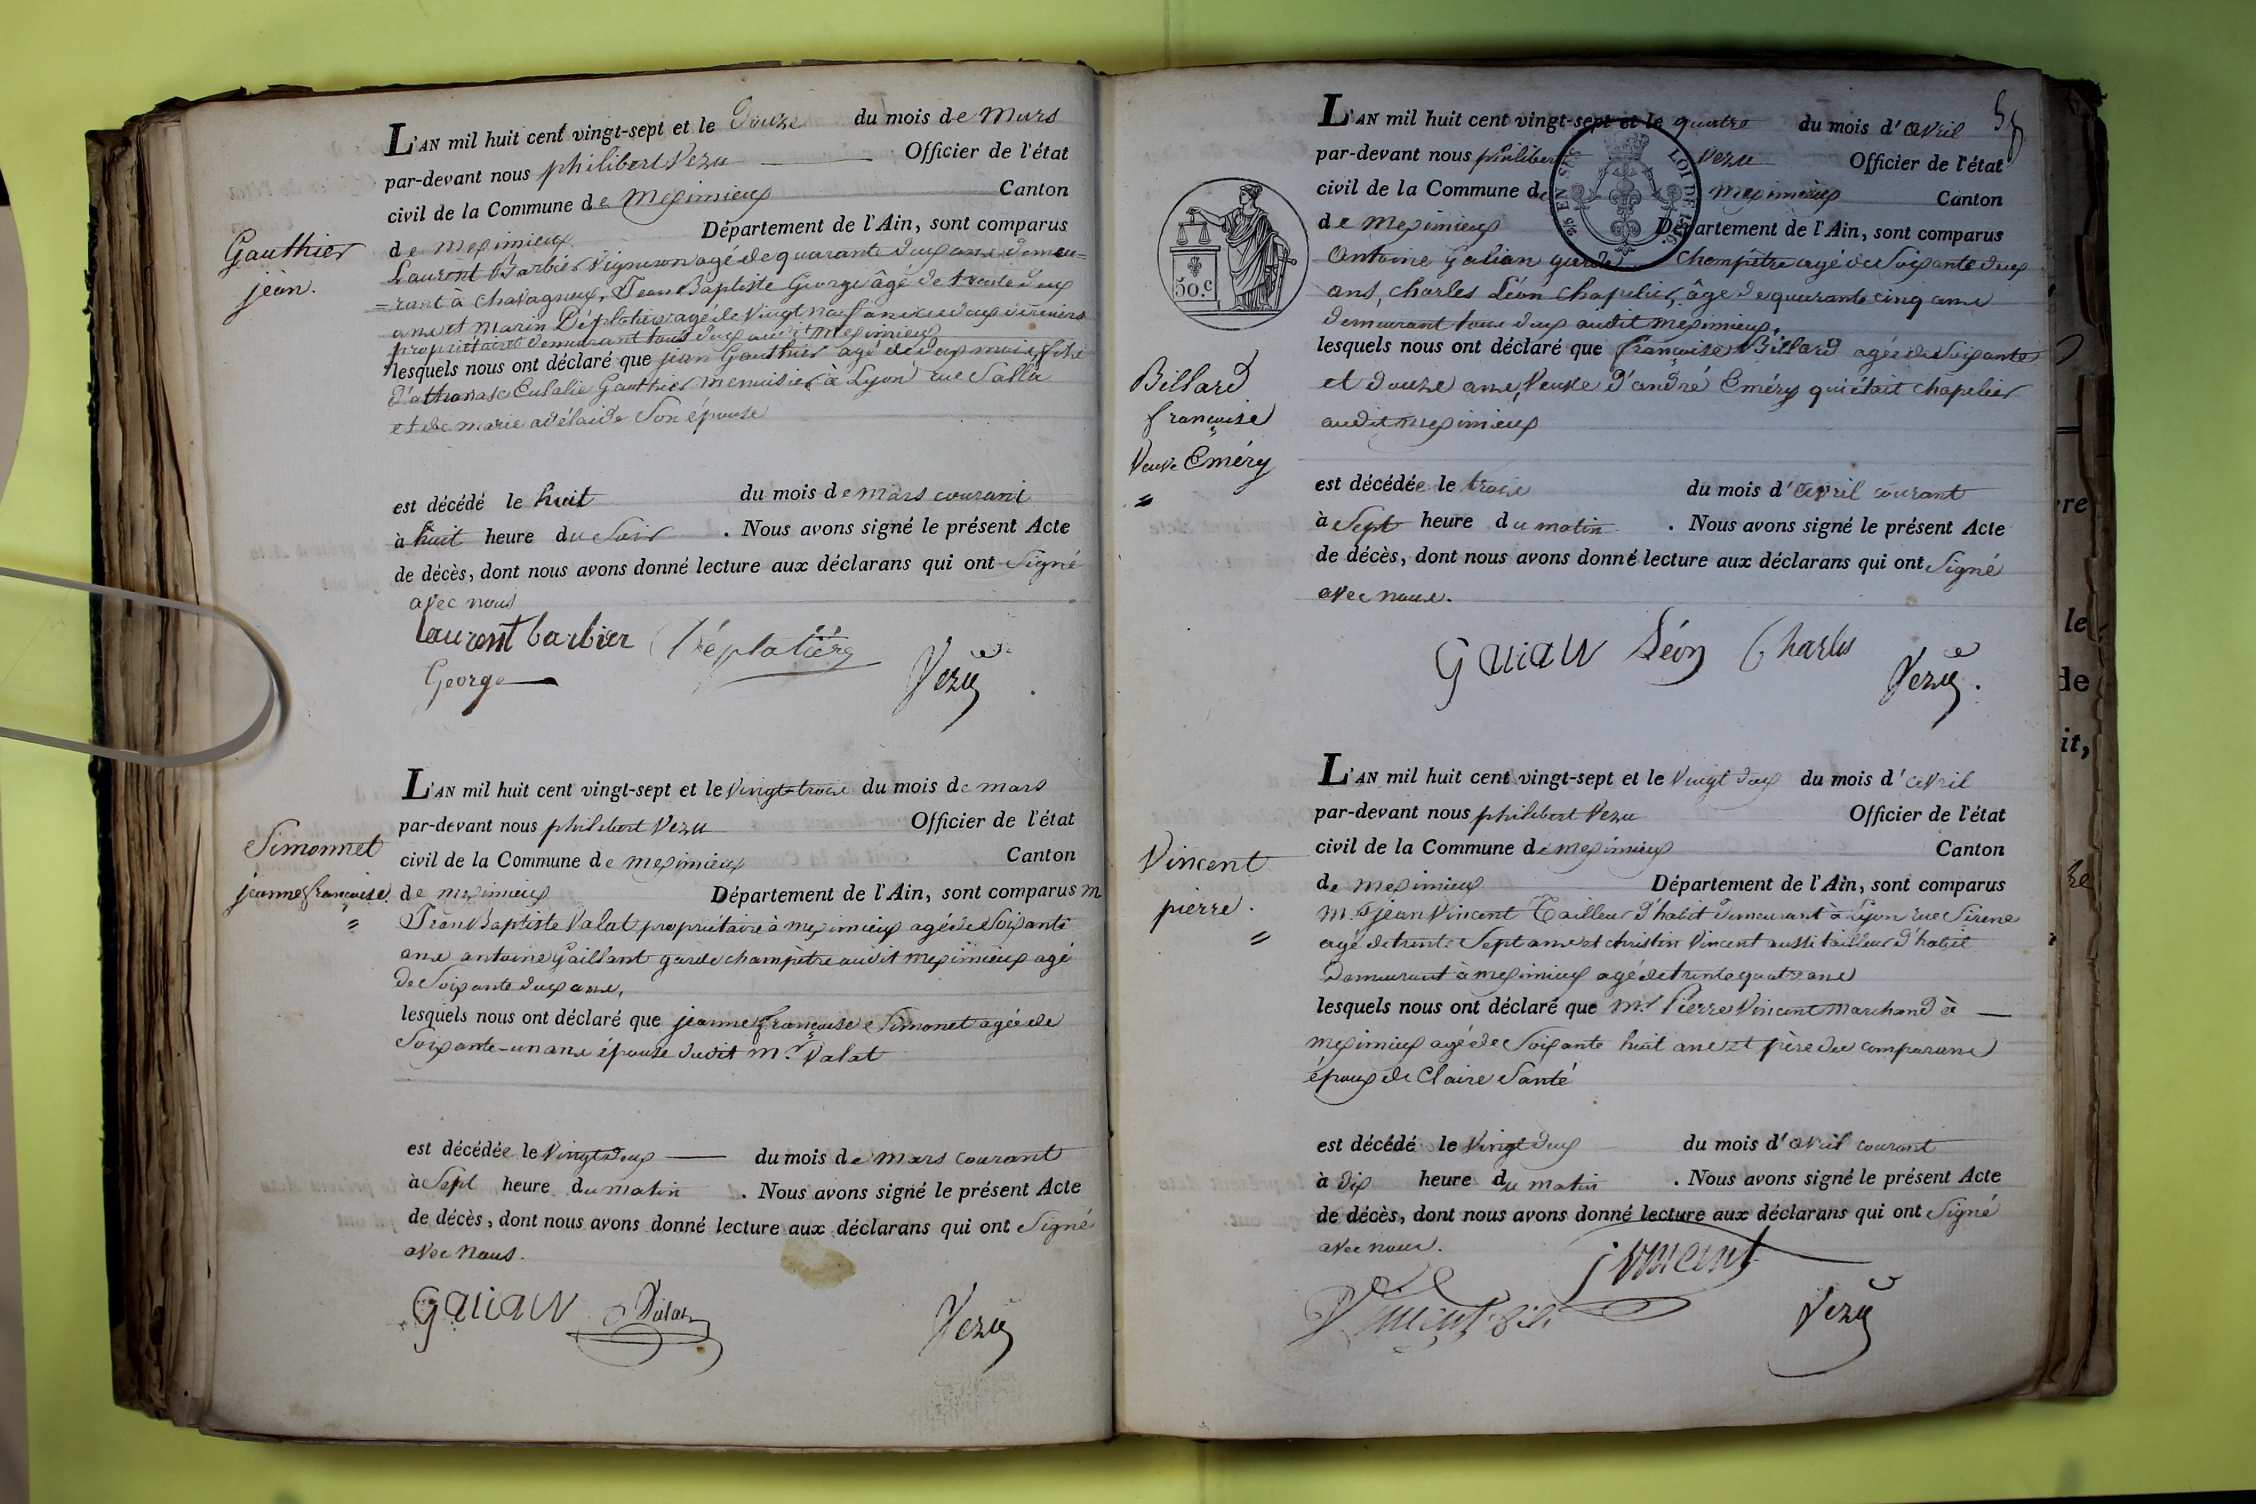 L'AN mil huit cent vingt-sept et le Douze du mois de Mars
par-devant nous philibert Vezu Officier de l'état
civil de la Commune de Meximieux Canton
de meximieux Département de l'Ain, sont comparus
Gauthier
jean.
Laurent Barbier Vigneron agé de quarante deux ans demeu=
=rant à Chavagneux, Jean Baptiste George âgé de trente deux
ans et Marin Déplatière agé de Vingt neuf ans ces deux derniers
propriétaires demeurant tous deux audit Meximieux
lesquels nous ont déclaré que jean Gauthier agé de deux mois, fils
d'athanase Eulalie Gauthier Menuisier à Lyon rue Salla
et de marie adélaide Son épouse
est décédé le huit du mois de mars courant
à huit heure du Soir . Nous avons signé le présent Acte
de décès, dont nous avons donné lecture aux déclarans qui ont Signé
avec nous
laurent barbier Déplatière
George Vezu
L'AN mil huit cent vingt-sept et le Vingt-trois du mois de mars
par-devant nous philibert Vezu Officier de l'état
civil de la Commune de meximieux Canton
de meximieux Département de l'Ain, sont comparus m
Simonnet
jeanne françoise.
Jean Baptiste Valat propriétaire à meximieux agé de Soixante
ans antoine Gaillant garde champêtre audit meximieux agé
de Soixante deux ans,
lesquels nous ont déclaré que jeanne françoise Simonet agée de
Soixante-un ans épouse dudit m.r Valat
est décédée le Vingt deux du mois de mars courant
à Sept heure du matin . Nous avons signé le présent Acte
de décès, dont nous avons donné lecture aux déclarans qui ont Signé
avec nous.
Galian Valat Vezu
L'AN mil huit cent vingt-sept et le quatre du mois d'avril
par-devant nous philibert Vezu Officier de l'état
civil de la Commune de Meximieux Canton
de Meximieux Département de l'Ain, sont comparus
EN SUS
LOI DE 1816.
50.c
Antoine Galian garde Champêtre agé de Soixante deux
ans, Charles Léon Chapelier, âgé de quarante cinq ans
demeurant tous deux audit meximieux,
lesquels nous ont déclaré que françoise Billard agée de Soixante
Billard
françoise
Veuve Eméry
et douze ans, Veuve d'andré Eméry qui était Chapelier
audit meximieux
est décédée le trois du mois d'avril courant
à Sept heure du matin . Nous avons signé le présent Acte
de décès, dont nous avons donné lecture aux déclarans qui ont Signé
avec nous.
Galian Léon Charles Vezu.
L'AN mil huit cent vingt-sept et le Vingt deux du mois d'avril
par-devant nous philibert Vezu Officier de l'état
civil de la Commune de meximieux Canton
de Meximieux Département de l'Ain, sont comparus
Vincent
pierre.
M.r jean Vincent Tailleur d'habit demeurant à Lyon rue Sirene
agé de trente Sept ans et christin Vincent aussi tailleur d'habit
Demeurant à meximieux agé de trente quatre ans
lesquels nous ont déclaré que M.r Pierre Vincent Marchand à
meximieux agé de Soixante huit ans et père des comparans
époux de Claire Santé
est décédé le Vingt deux du mois d'avril courant
à dix heure du matin . Nous avons signé le présent Acte
de décès, dont nous avons donné lecture aux déclarans qui ont Signé
avec nous.
j Vincent
Vincent fils Vezu